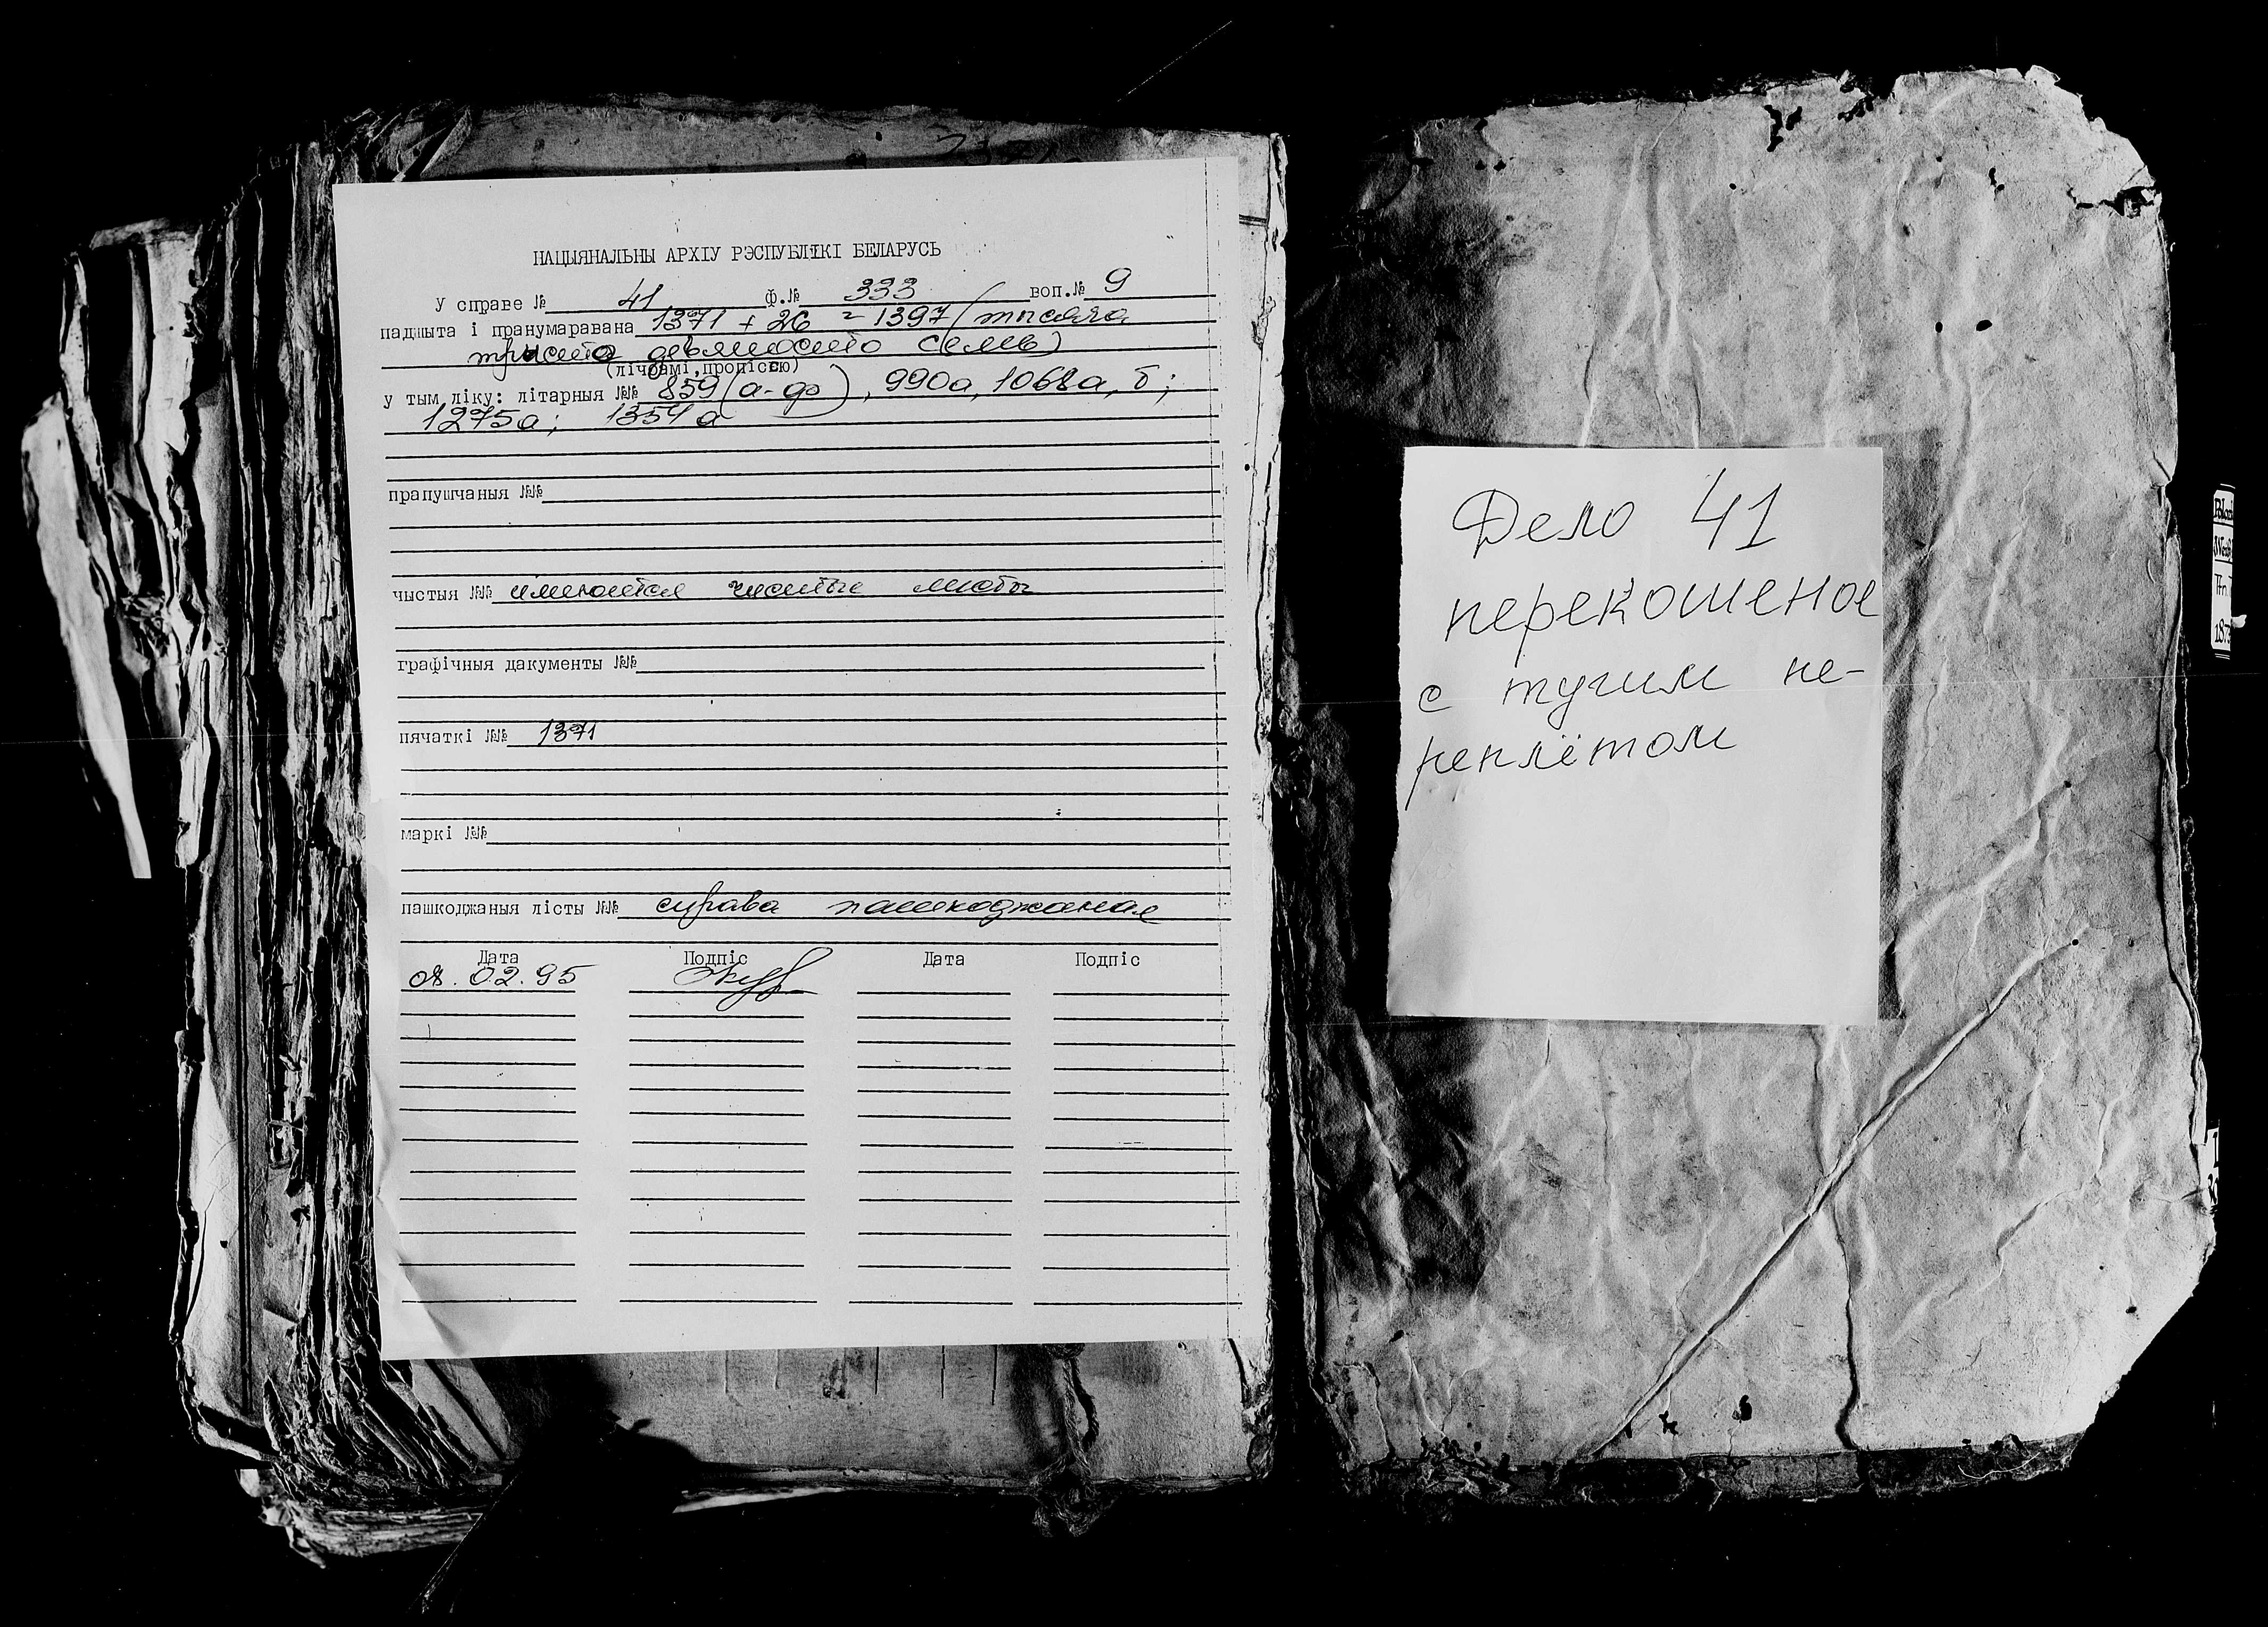 НАЦЫЯНАЛЬНЫ АРХІУ РЭСПУБЛІКІ БЕЛАРУСЬ
У справе № 41 ф.№ 333 воп.№ 9
падшыта і пранумаравана 1371 + 26 = 1397 (тысяча
трыста девяносто семь)
(лічбамі, пропіссю)
у тым ліку: літарныя №№ 859 (а-ф), 990а, 1068а, б;
1275а; 1354а
прапушчаныя №№
чыстыя №№ имеются чистые листы
графічныя дакументы №№
пячаткі №№ 1371
маркі №№
пашкоджаныя лісты №№ справа пашкоджаная
Дата Подпіс Дата Подпіс
02.95
Дело 41
перекошеное
с тугим пе-
реплётом